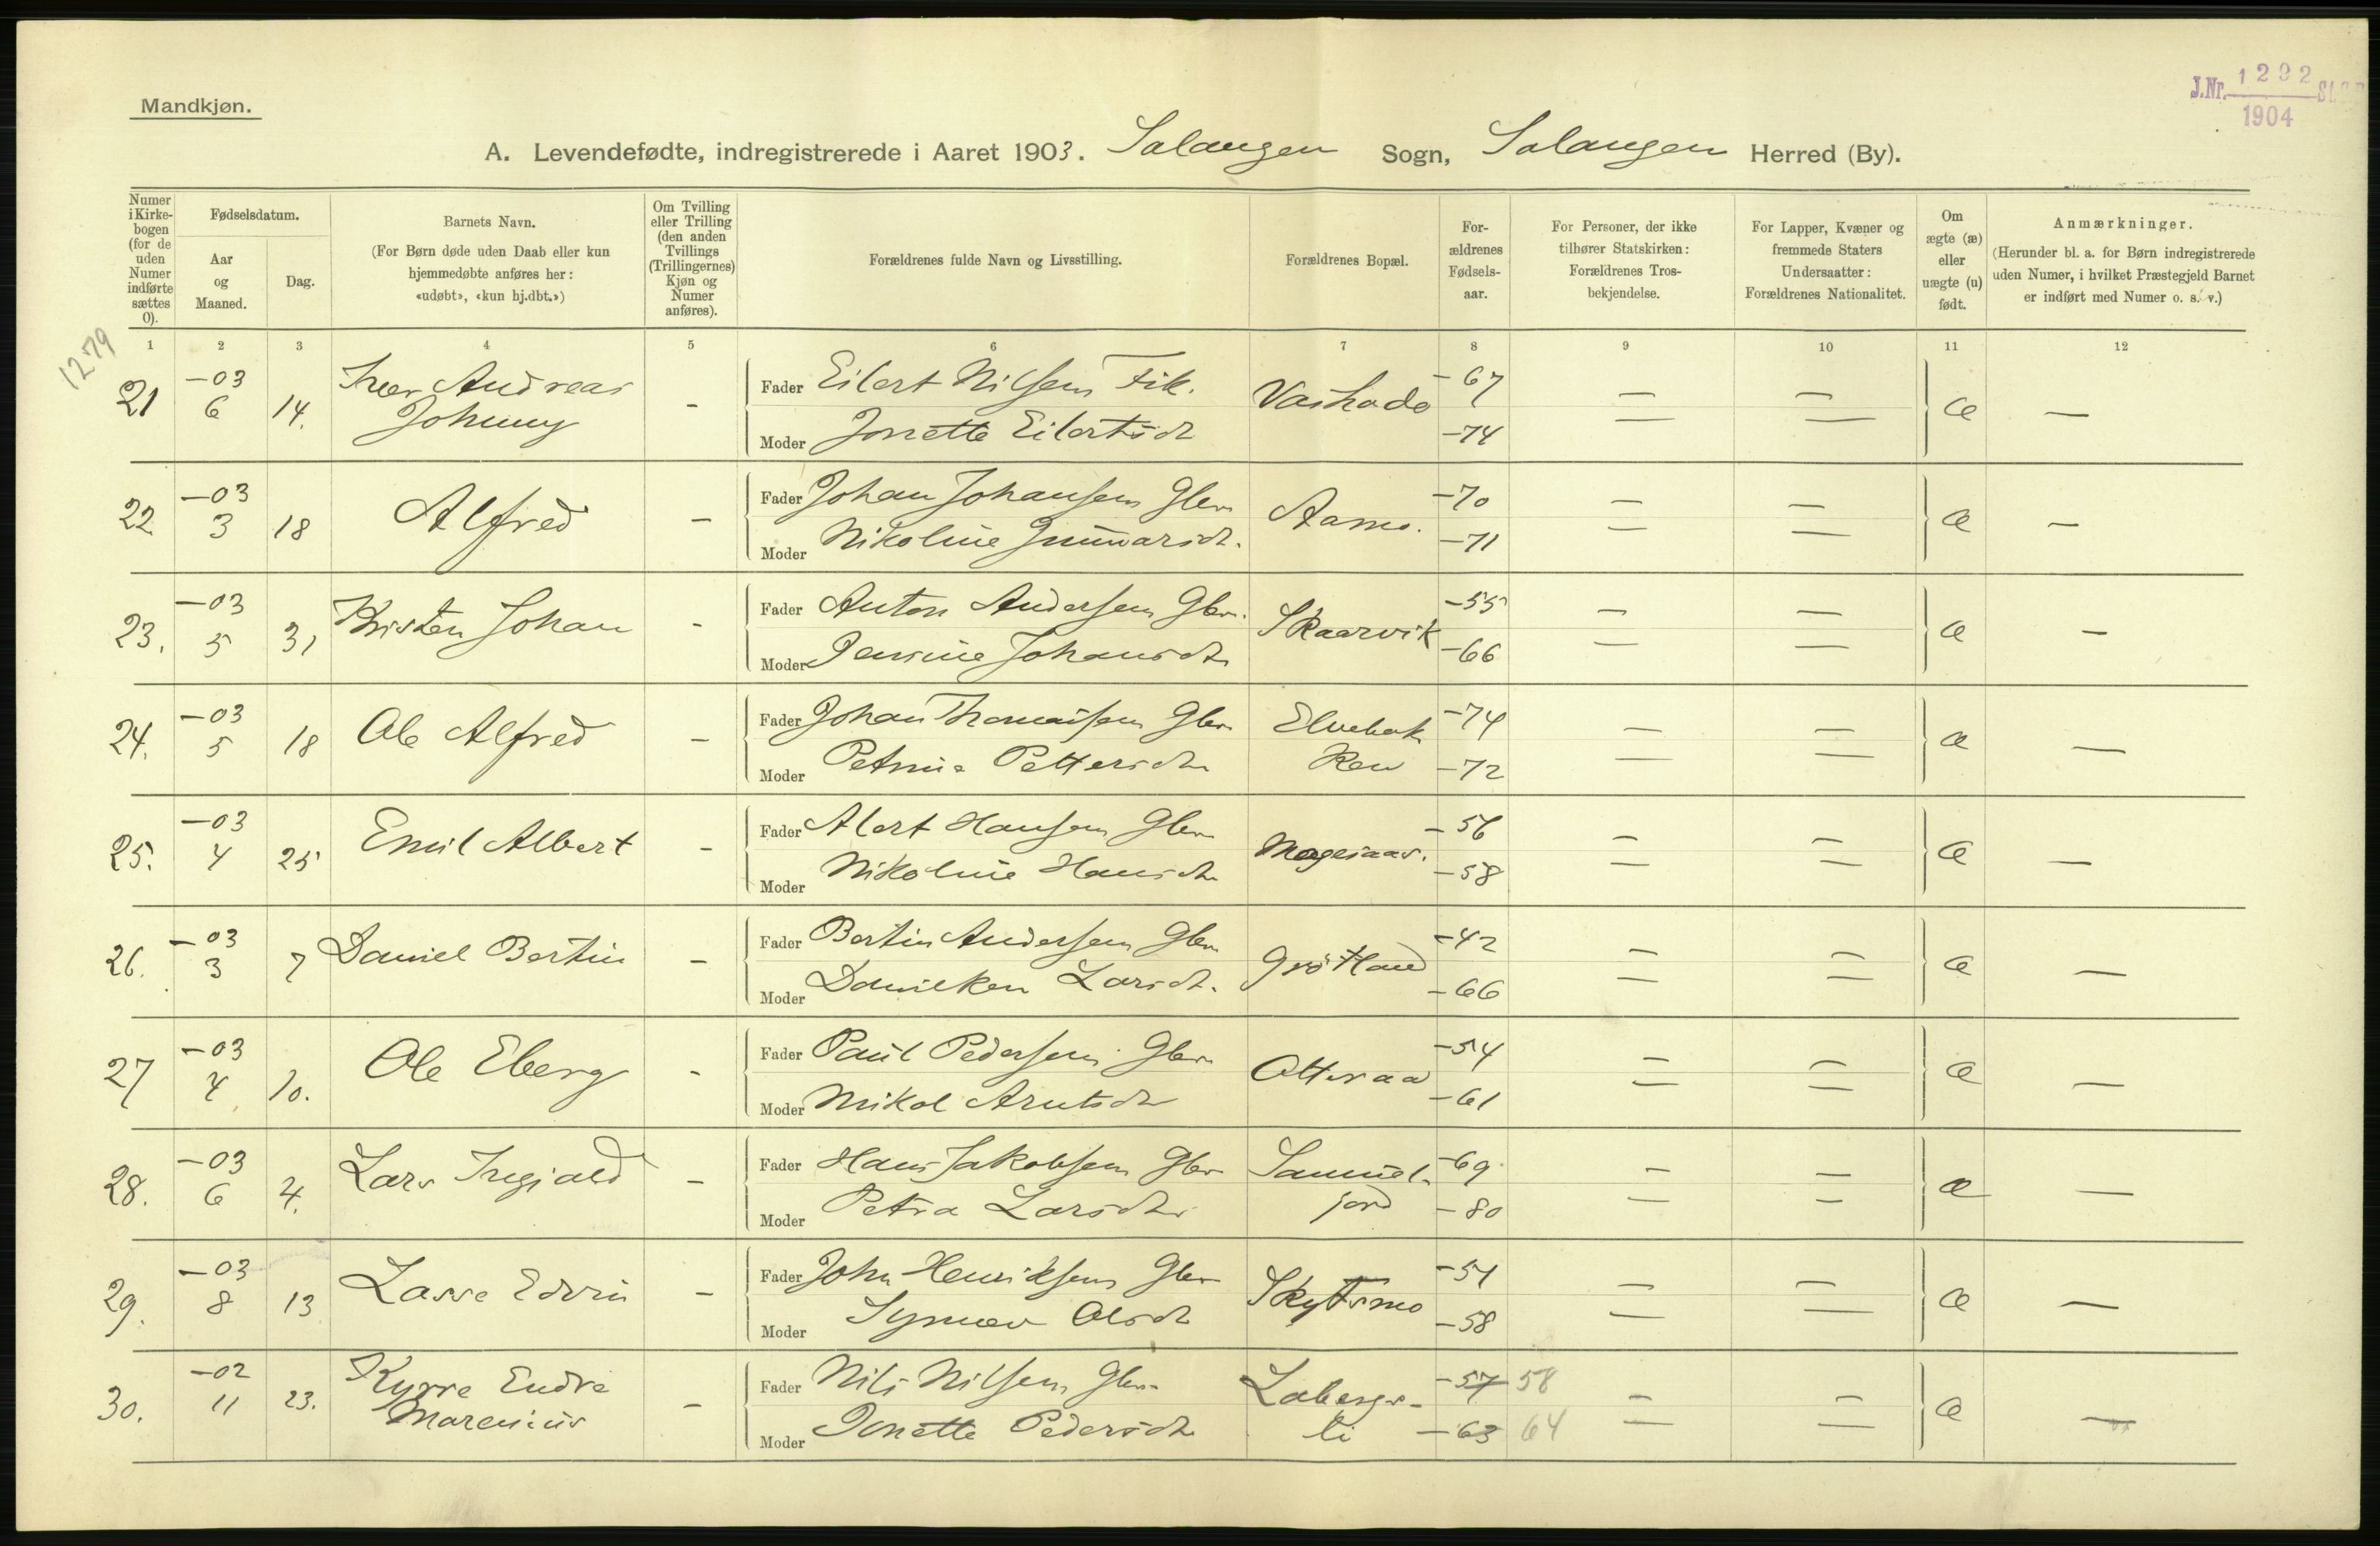 J.Nr. 1292
1904
Mandkjøn.
A. Levendefødte, indregistrerede i Aaret 1903. Salangen Sogn, Salangen Herred (By).
Numer i Kirke-bogen (for de uden Numer indførte sættes 0).
Fødselsdatum.
Aar og Maaned.
Dag.
Barnets Navn.
(For Børn døde uden Daab eller kun hjemmedøbte anføres her: «udøbt», «kun hj.dbt.»)
Om Tvilling eller Trilling (den anden Tvillings (Trillingernes) Kjøn og Numer anføres).
Forældrenes fulde Navn og Livsstilling.
Forældrenes Bopæl.
For-ældrenes Fødsels-aar.
For Personer, der ikke tilhører Statskirken: Forældrenes Tros-bekjendelse.
For Lapper, Kvæner og fremmede Staters Undersaatter: Forældrenes Nationalitet.
Om ægte (æ) eller uægte (u) født.
Anmærkninger.
(Herunder bl. a. for Børn indregistrerede uden Numer, i hvilket Præstegjeld Barnet er indført med Numer o. s. v.)
1 2 3 4 5 6 7 8 9 10 11 12
1279
21 -03 6 14. Iver Andreas Johnny - Fader Eilert Nilsen Fik. Vashode -67 æ -
Moder Jonette Eilertsdr -74
22 -03 3 18 Alfred - Fader Johan Johansen Gbr Aamo. -70 æ -
Moder Nikoline Gunnarsdr. -71
23. -03 5 31 Kristen Johan - Fader Anton Andersen Gbr. Skaarvik -55 æ -
Moder Jensine Johansdr -66
24. -03 5 18 Ole Alfred - Fader Johan Thomassen Gbr Elvebakken -74 æ -
Moder Petrine Pettersdr -72
25. -03 4 25 Emil Albert - Fader Alert Hansen Gbr -56 æ -
Moder Nikoline Hansdr -58
26. -03 3 7 Daniel Bertin - Fader Bertin Andersen Gbr Grøtland -42 æ -
Moder Danilken Larsdr. -66
27 -03 4 10. Ole Eberg - Fader Paul Pedersen Gbr Otteraa -54 æ -
Moder Nrikol Arntsdr -61
28. -03 6 4. Lars Ingjald - Fader Hans Jakobsen Gbr Samueljord -69 æ -
Moder Petra Larsdr -80
29. -03 8 13 Lasse Edvin - Fader John Henriksen Gbr Skytsmo -51 æ -
Moder Synnev Olsdr -58
30. -02 11 23. Kyrre Endre Marenius - Fader Nils Nilsen Gbr. Labergs-li -57 58 æ -
Moder Jonette Pedersdr -63 64